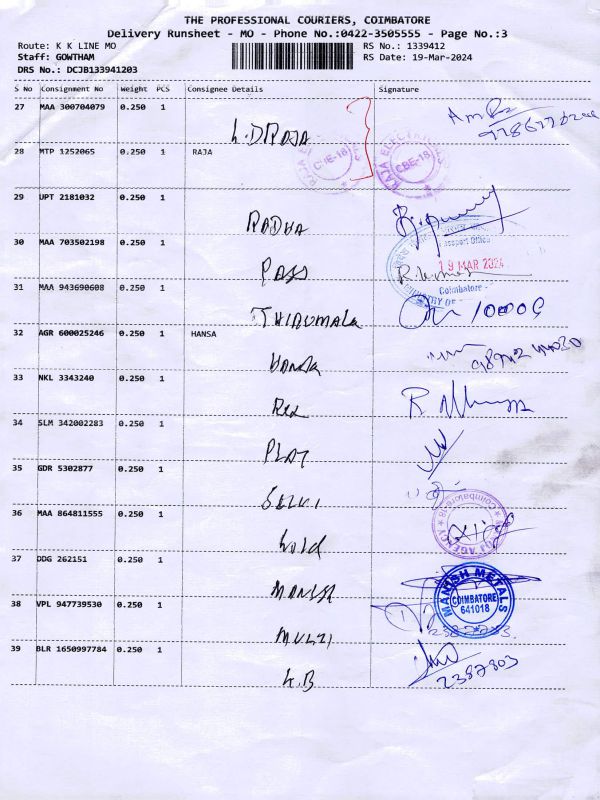 THE PROFESSIONAL COURIERS, COIMBATORE
Delivery Runsheet - MO - Phone No.:0422-3505555 - Page No.:3
Route: K K LINE MO
RS No.: 1339412
Staff: GOWTHAM
RS Date: 19-Mar-2024
DRS No.: DCJB133941203
S No Consignment No Weight PCS Consignee Details Signature
27 MAA 300704079 0.250 1
L.D RAJA
28 MTP 1252065 0.250 1 RAJA
RAJA ELECTRICALS CBE-18
29 UPT 2181032 0.250 1
RADHA
30 MAA 703502198 0.250 1
PASS
Passport Office
19 MAR 2024
Coimbatore
31 MAA 943690608 0.250 1
THIRUMALA
32 AGR 600025246 0.250 1 HANSA
HANSA
33 NKL 3343240 0.250 1
Rex
34 SLM 342002283 0.250 1
PLAT
35 GDR 5302877 0.250 1
SELVI
36 MAA 864811555 0.250 1
Gold
AGENCY Coimbatore-18
37 DDG 262151 0.250 1
MANISH
MANISH METALS
COIMBATORE
641018
38 VPL 947739530 0.250 1
MULTI
39 BLR 1650997784 0.250 1
2387303
G.B